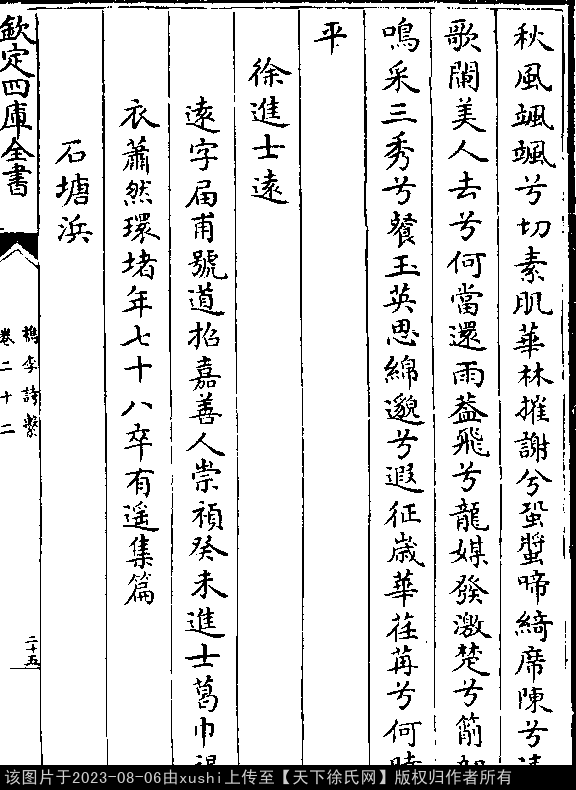 秋風颯颯兮切素肌華林摧謝兮蛩螿啼綺席陳兮清
歌闌美人去兮何當還雨葢飛兮龍媒發激楚兮簫
鳴采三秀兮餐玉英思綿邈兮遐征嵗華荏苒兮何時
平
徐進士逺
逺字届甫號道招嘉善人崇禎癸未進士葛巾
衣蕭然環堵年七十八卒有遥集篇
石塘浜
欽定四庫全書
檇李詩繫
卷二十二
二十五
该图片于2023-08-06由xushi上传至【天下徐氏网】版权归作者所有